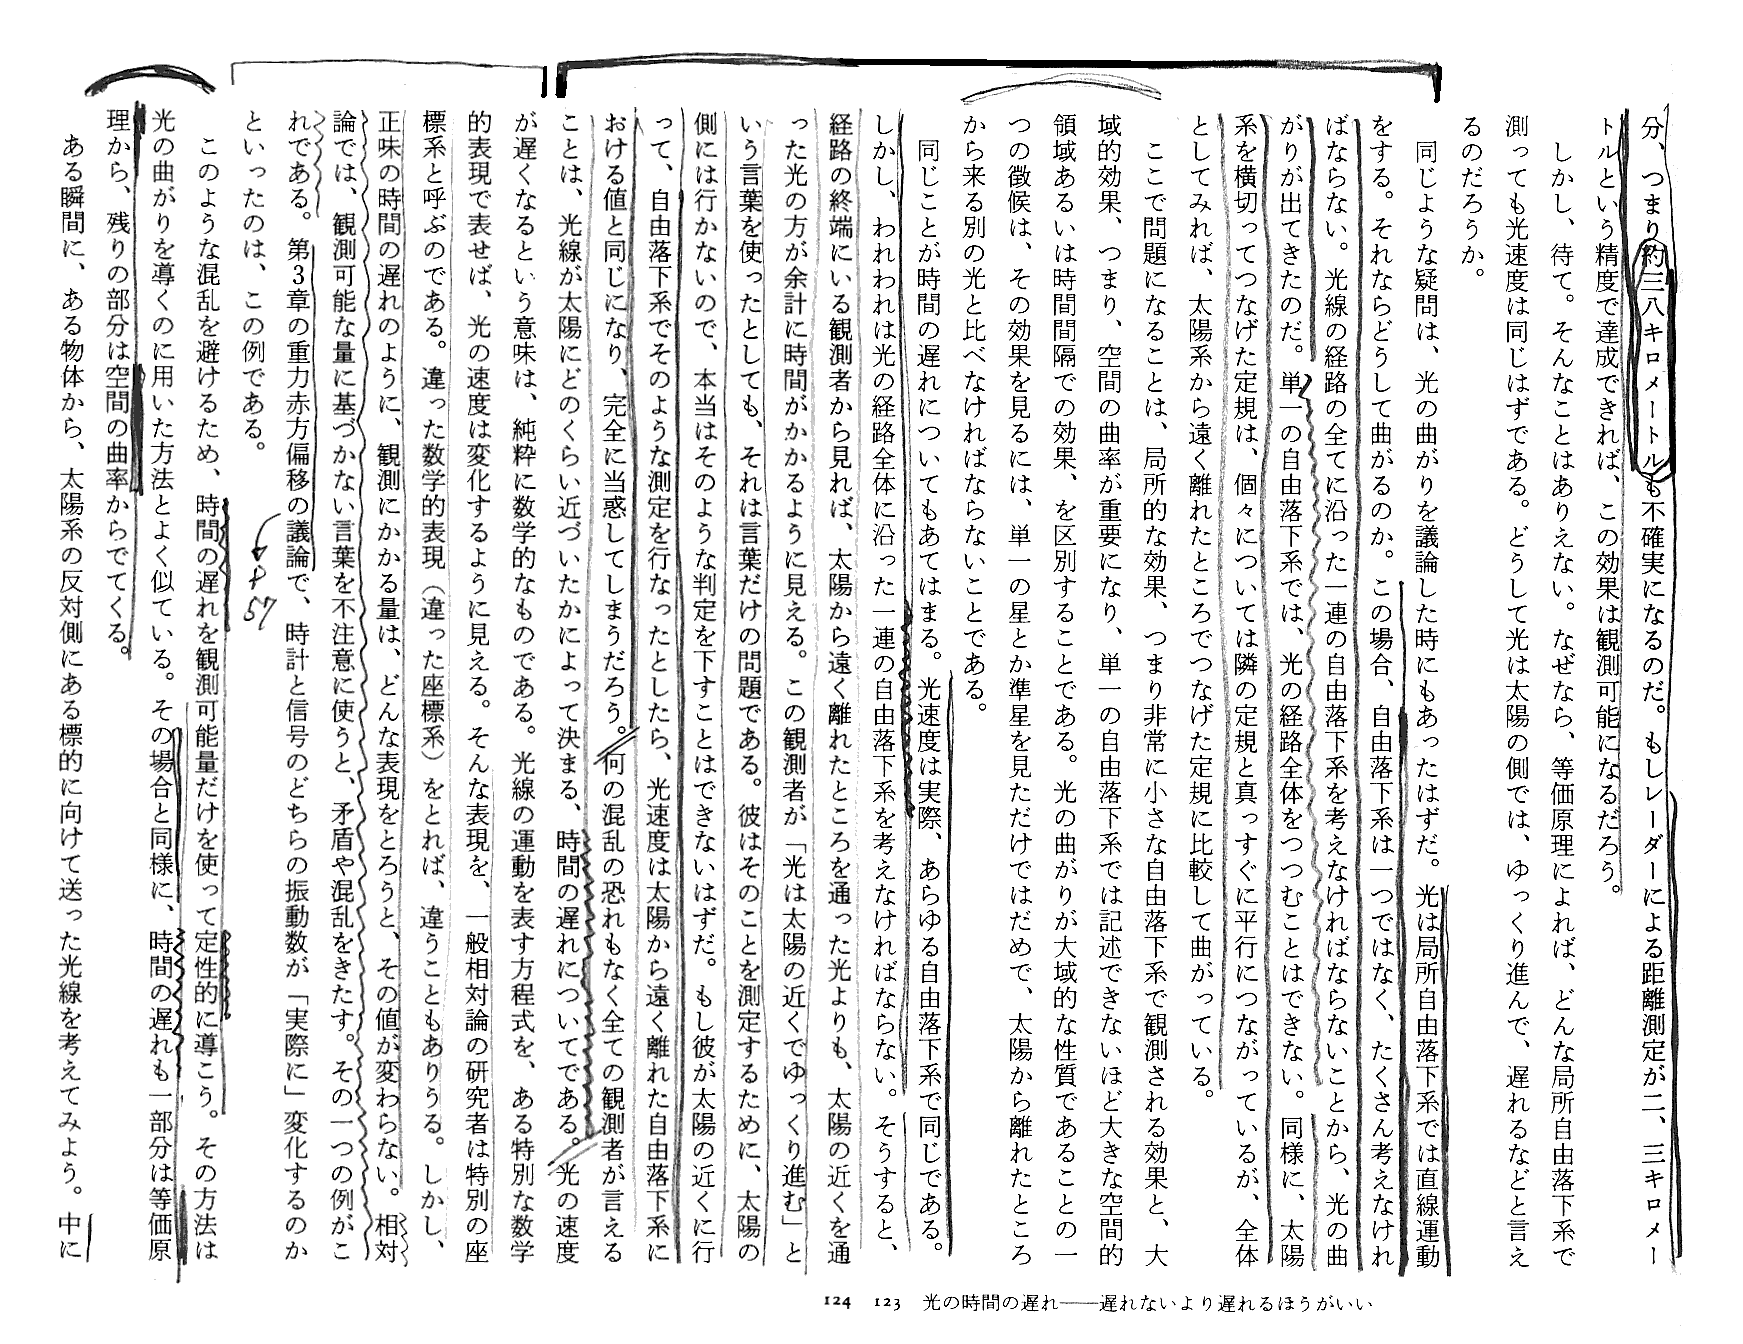 分、つまり約三八キロメートルも不確実になるのだ。もしレーダーによる距離測定が二、三キロメー
トルという精度で達成できれば、この効果は観測可能になるだろう。
しかし、待て。そんなことはありえない。なぜなら、等価原理によれば、どんな局所自由落下系で
測っても光速度は同じはずである。どうして光は太陽の側では、ゆっくり進んで、遅れるなどと言え
るのだろうか。
同じような疑問は、光の曲がりを議論した時にもあったはずだ。光は局所自由落下系では直線運動
をする。それならどうして曲がるのか。この場合、自由落下系は一つではなく、たくさん考えなけれ
ばならない。光線の経路の全てに沿った一連の自由落下系を考えなければならないことから、光の曲
がりが出てきたのだ。単一の自由落下系では、光の経路全体をつつむことはできない。同様に、太陽
系を横切ってつなげた定規は、個々については隣の定規と真っすぐに平行につながっているが、全体
としてみれば、太陽系から遠く離れたところでつなげた定規に比較して曲がっている。
ここで問題になることは、局所的な効果、つまり非常に小さな自由落下系で観測される効果と、大
域的効果、つまり、空間の曲率が重要になり、単一の自由落下系では記述できないほど大きな空間的
領域あるいは時間間隔での効果、を区別することである。光の曲がりが大域的な性質であることの一
つの徴候は、その効果を見るには、単一の星とか準星を見ただけではだめで、太陽から離れたところ
から来る別の光と比べなければならないことである。
同じことが時間の遅れについてもあてはまる。光速度は実際、あらゆる自由落下系で同じである。
しかし、われわれは光の経路全体に沿った一連の自由落下系を考えなければならない。そうすると、
経路の終端にいる観測者から見れば、太陽から遠く離れたところを通った光よりも、太陽の近くを通
った光の方が余計に時間がかかるように見える。この観測者が「光は太陽の近くでゆっくり進む」と
いう言葉を使ったとしても、それは言葉だけの問題である。彼はそのことを測定するために、太陽の
側には行かないので、本当はそのような判定を下すことはできないはずだ。もし彼が太陽の近くに行
って、自由落下系でそのような測定を行なったとしたら、光速度は太陽から遠く離れた自由落下系に
おける値と同じになり、完全に当惑してしまうだろう。何の混乱の恐れもなく全ての観測者が言える
ことは、光線が太陽にどのくらい近づいたかによって決まる、時間の遅れについてである。光の速度
が遅くなるという意味は、純粋に数学的なものである。光線の運動を表す方程式を、ある特別な数学
的表現で表せば、光の速度は変化するように見える。そんな表現を、一般相対論の研究者は特別の座
標系と呼ぶのである。違った数学的表現（違った座標系）をとれば、違うこともありうる。しかし、
正味の時間の遅れのように、観測にかかる量は、どんな表現をとろうと、その値が変わらない。相対
論では、観測可能な量に基づかない言葉を不注意に使うと、矛盾や混乱をきたす。その一つの例がこ
れである。第3章の重力赤方偏移の議論で、時計と信号のどちらの振動数が「実際に」変化するのか
といったのは、この例である。
P57
このような混乱を避けるため、時間の遅れを観測可能量だけを使って定性的に導こう。その方法は
光の曲がりを導くのに用いた方法とよく似ている。その場合と同様に、時間の遅れも一部分は等価原
理から、残りの部分は空間の曲率からでてくる。
ある瞬間に、ある物体から、太陽系の反対側にある標的に向けて送った光線を考えてみよう。中に
124 123 光の時間の遅れ——遅れないより遅れるほうがいい